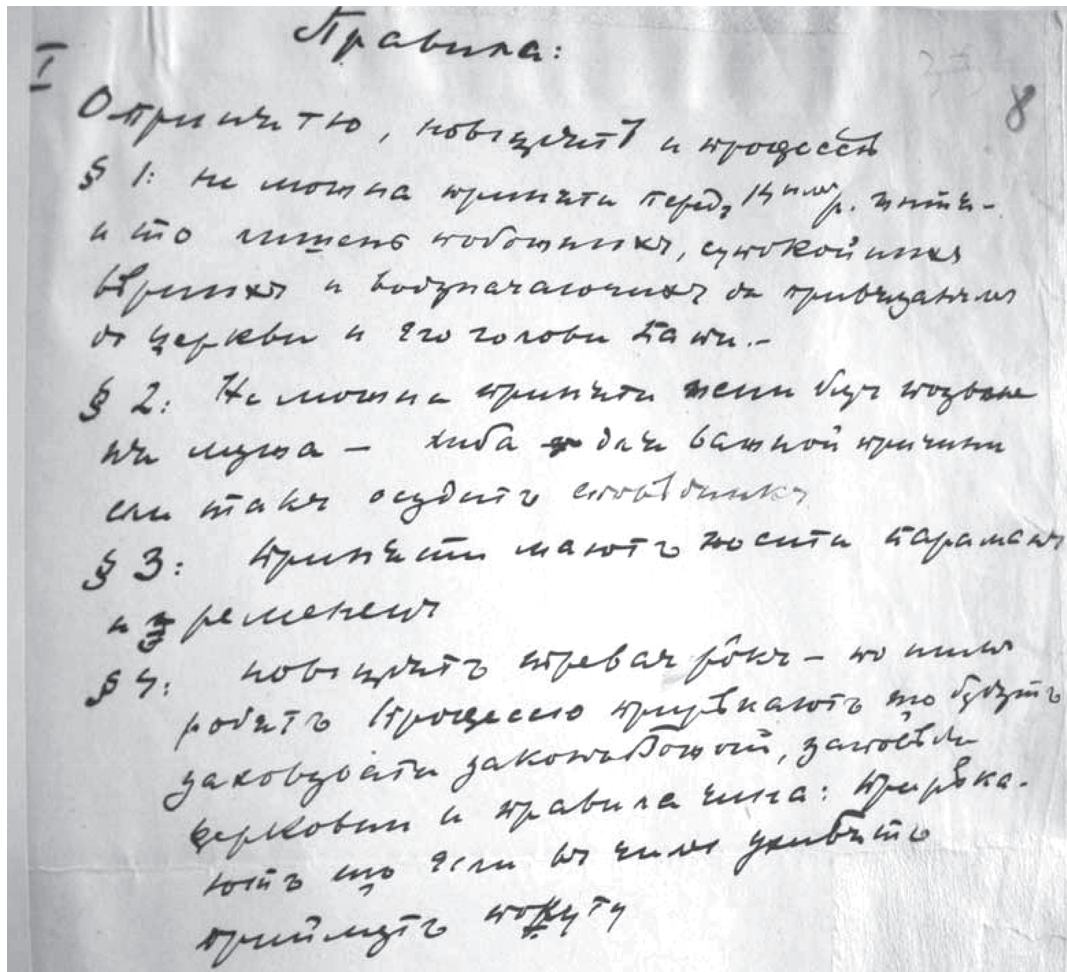 Правила:
I
8
О принятю, новіціятѣ и професіѣ
§ 1: Не можна приняти передъ 14 тим р. житя-
и то лишень побожныхъ, супокойныхъ
вѣрныхъ и водзначаючихъ ся привязанямъ
до церкви и єго голови Папи.-
§ 2: Не можна приняти жени безъ позволе
ня мужа – хиба для важной причини
єсли такъ осудитъ сповѣдникъ
§ 3: Приняти маютъ носити параманъ
и ременець
§ 4: новіціятъ треває рôкъ – по нимъ
робитъ професію прирѣкаютъ що будутъ
заховувати законъ Божій, заповѣди
церковни и правила чина: прирѣка-
ютъ що єсли въ чимъ ухиблятъ
приймутъ покуту